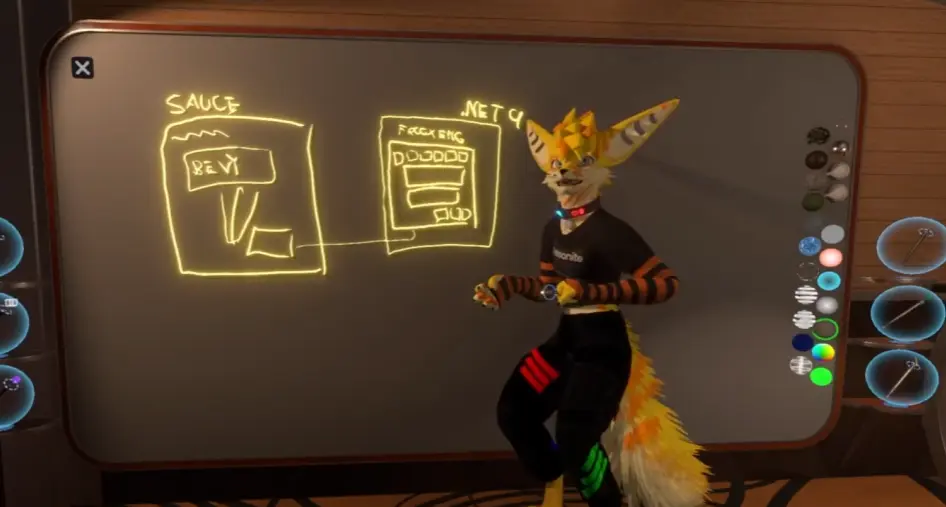 SAUCE
BEVY
.NET 9
FROOXENG